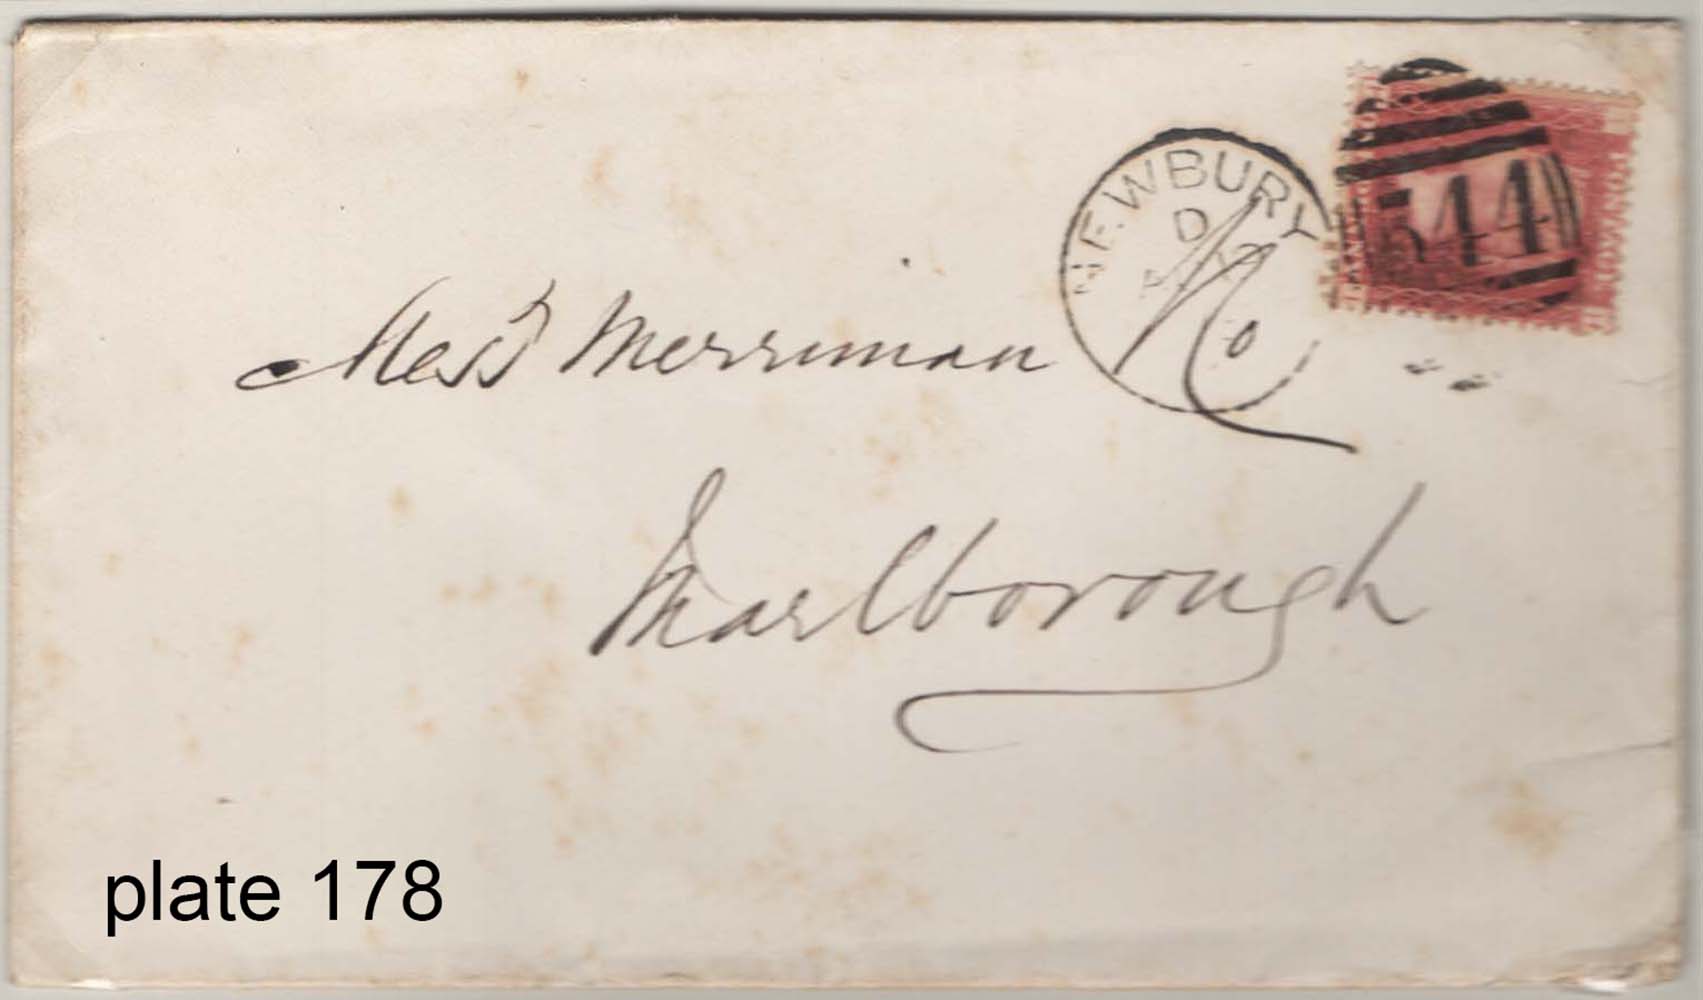 NEWBURY
D
544
Mess.rs Merriman & Co
Marlborough
plate 178